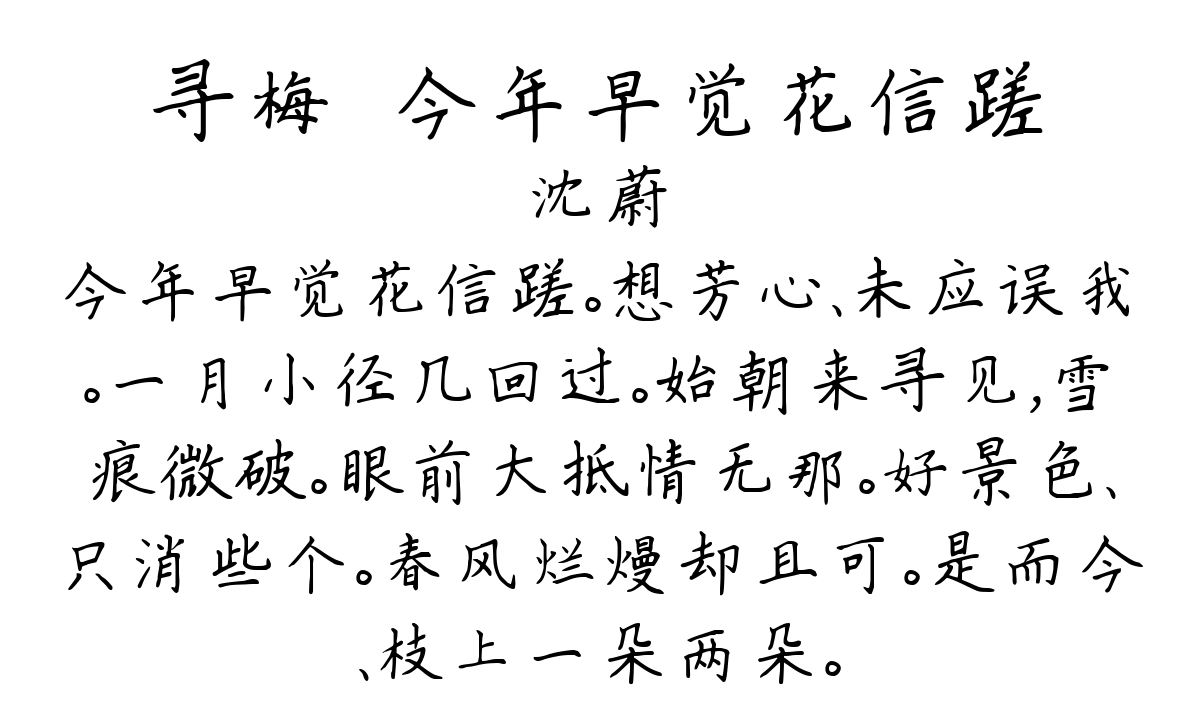 寻梅 今年早觉花信蹉
沈蔚
今年早觉花信蹉。想芳心、未应误我
。一月小径几回过。始朝来寻见,雪
痕微破。眼前大抵情无那。好景色、
只消些个。春风烂熳却且可。是而今
、枝上一朵两朵。